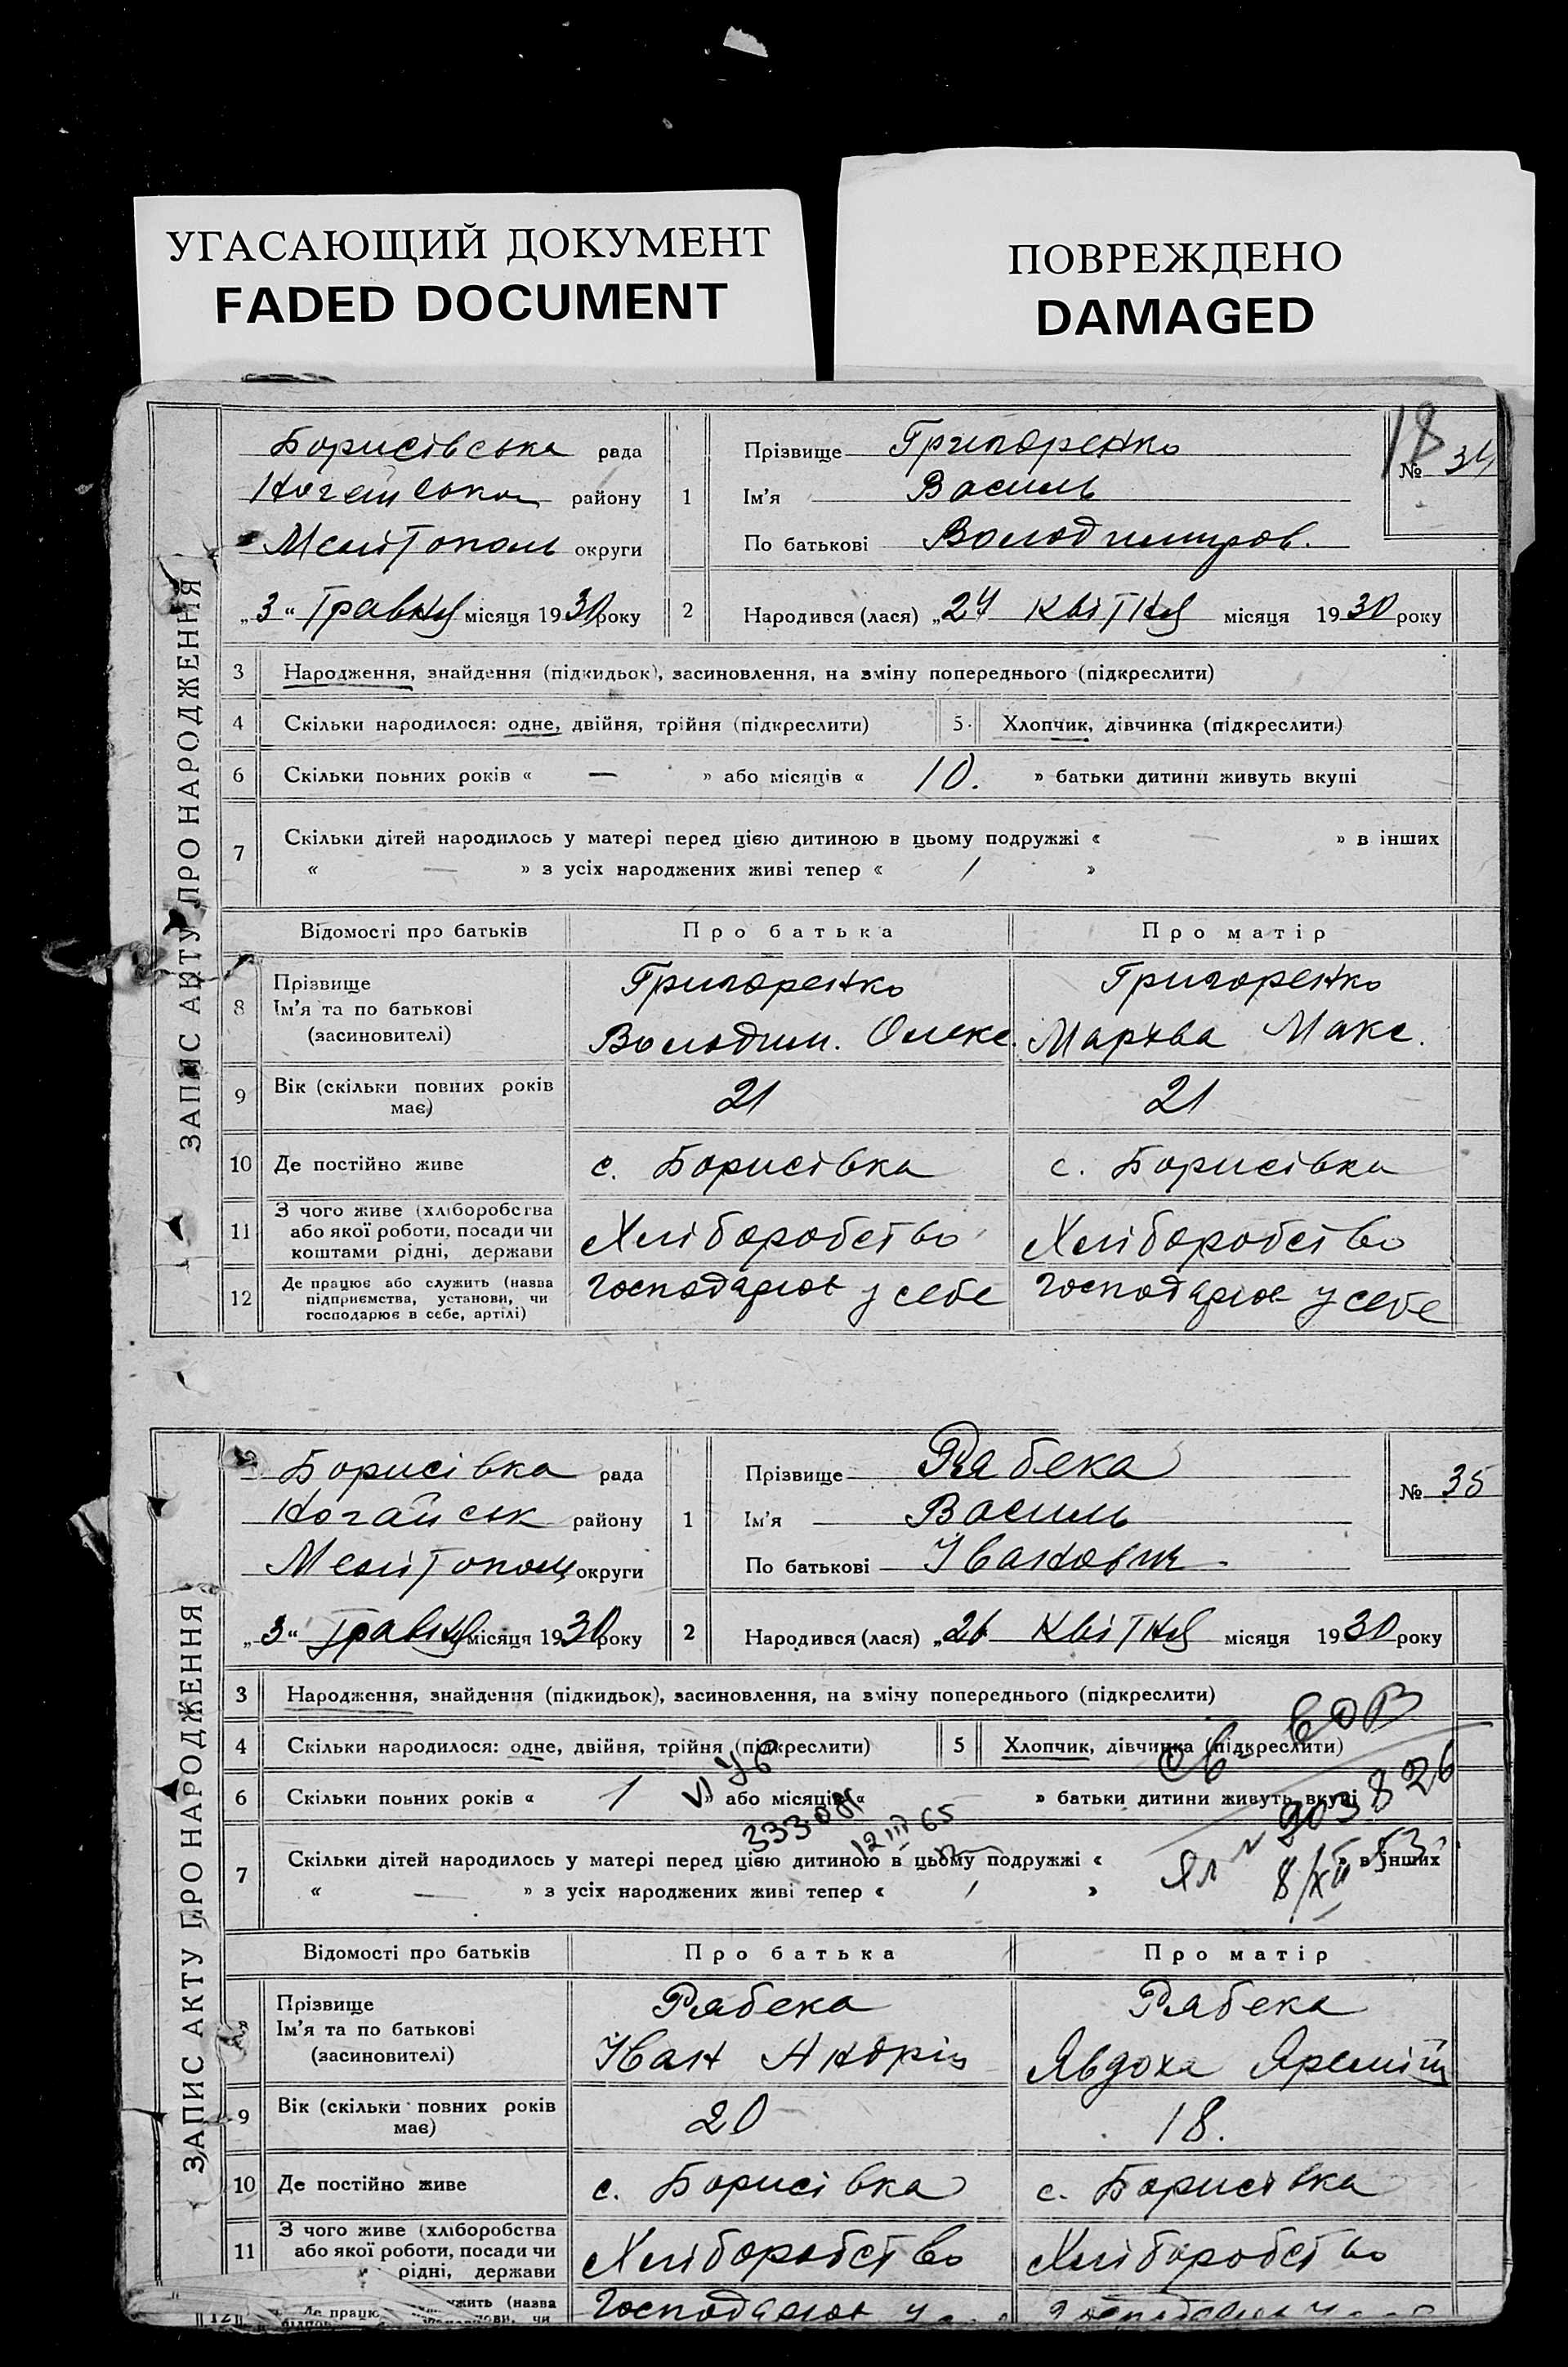 УГАСАЮЩИЙ ДОКУМЕНТ
FADED DOCUMENT
ПОВРЕЖДЕНО
DAMAGED
ЗАПИС АКТУ ПРО НАРОДЖЕННЯ
Борисівська рада
району
МеліТополь округи
„3“ Травня місяця 1930 року
18
№ 34
1 Прізвище Григоренко
Ім'я Василь
По батькові Володимиров.
2 Народився (лася) „24 квітня місяця 1930 року
3 Народження, знайдення (підкидьок), засиновлення, на зміну попереднього (підкреслити)
4 Скільки народилося: одне, двійня, трійня (підкреслити) 5 Хлопчик, дівчинка (підкреслити)
6 Скільки повних років « — » або місяців « 10. » батьки дитини живуть вкупі
7 Скільки дітей народилось у матері перед цією дитиною в цьому подружжі « — » в інших
« — » з усіх народжених живі тепер « 1 »
Відомості про батьків Про батька Про матір
8 Прізвище Григоренко Григоренко
Ім'я та по батькові
(засиновителі) Володим. Олекс. Марфва Макс.
9 Вік (скільки повних років має) 21 21
10 Де постійно живе с. Борисівка с. Борисівка
11 З чого живе (хліборобства
або якої роботи, посади чи
коштами рідні, держави Хліборобство Хліборобство
12 Де працює або служить (назва
підприємства, установи, чи
господарює в себе, артілі) Господарює у себе Господарює у себе
ЗАПИС АКТУ ПРО НАРОДЖЕННЯ
Борисівка рада
Ногайськ району
округи
„3“ Травня місяця 1930 року
№ 35
1 Прізвище Рябека
Ім'я Василь
По батькові Іванович
2 Народився (лася) „26 квітня місяця 1930 року
3 Народження, знайдення (підкидьок), засиновлення, на зміну попереднього (підкреслити)
4 Скільки народилося: одне, двійня, трійня (підкреслити) 5 Хлопчик, дівчинка (підкреслити)
6 Скільки повних років « 1 » або місяців « » батьки дитини живуть вкупі
12 III 65
7 Скільки дітей народилось у матері перед цією дитиною в цьому подружжі « — » в інших
8/XII 53
« — » з усіх народжених живі тепер « 1 »
Відомості про батьків Про батька Про матір
8 Прізвище Рябека Рябека
Ім'я та по батькові
(засиновителі) Іван Андрій Явдоха
9 Вік (скільки повних років має) 20 18.
10 Де постійно живе с. Борисівка с. Борисівка
11 З чого живе (хліборобства
або якої роботи, посади чи
рідні, держави Хліборобство Хліборобство
12 (назва
чи Господарює